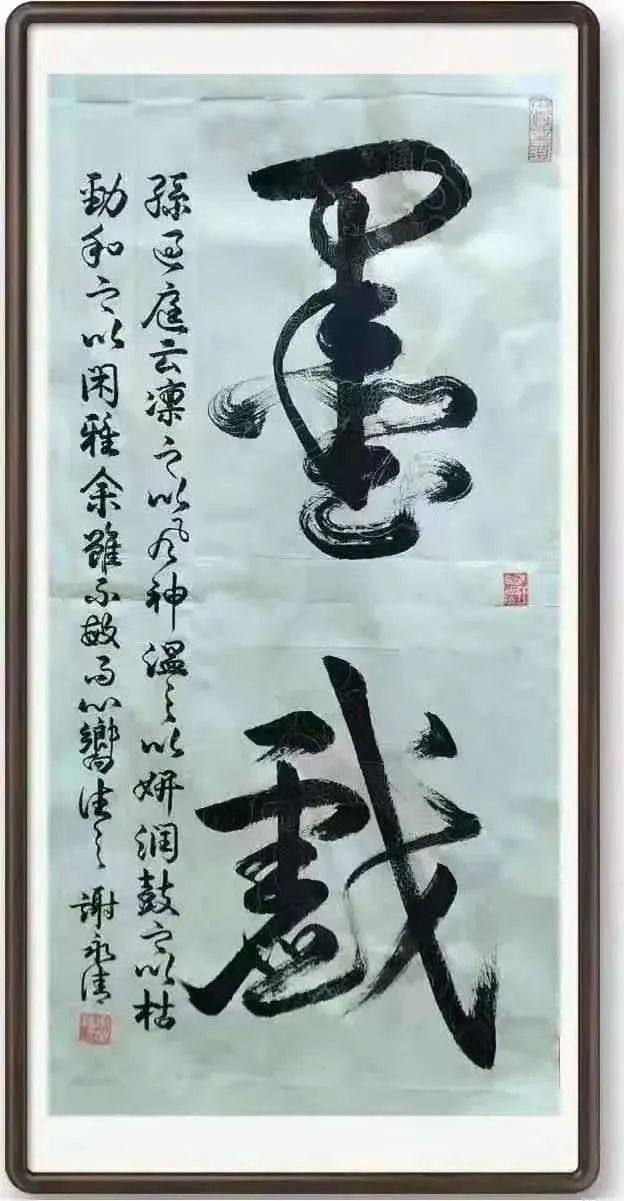 墨戲
孫過庭云凜之以風神溫之以妍潤鼓之以枯
勁和之以閑雅余雖不敏而心嚮往之
謝永清